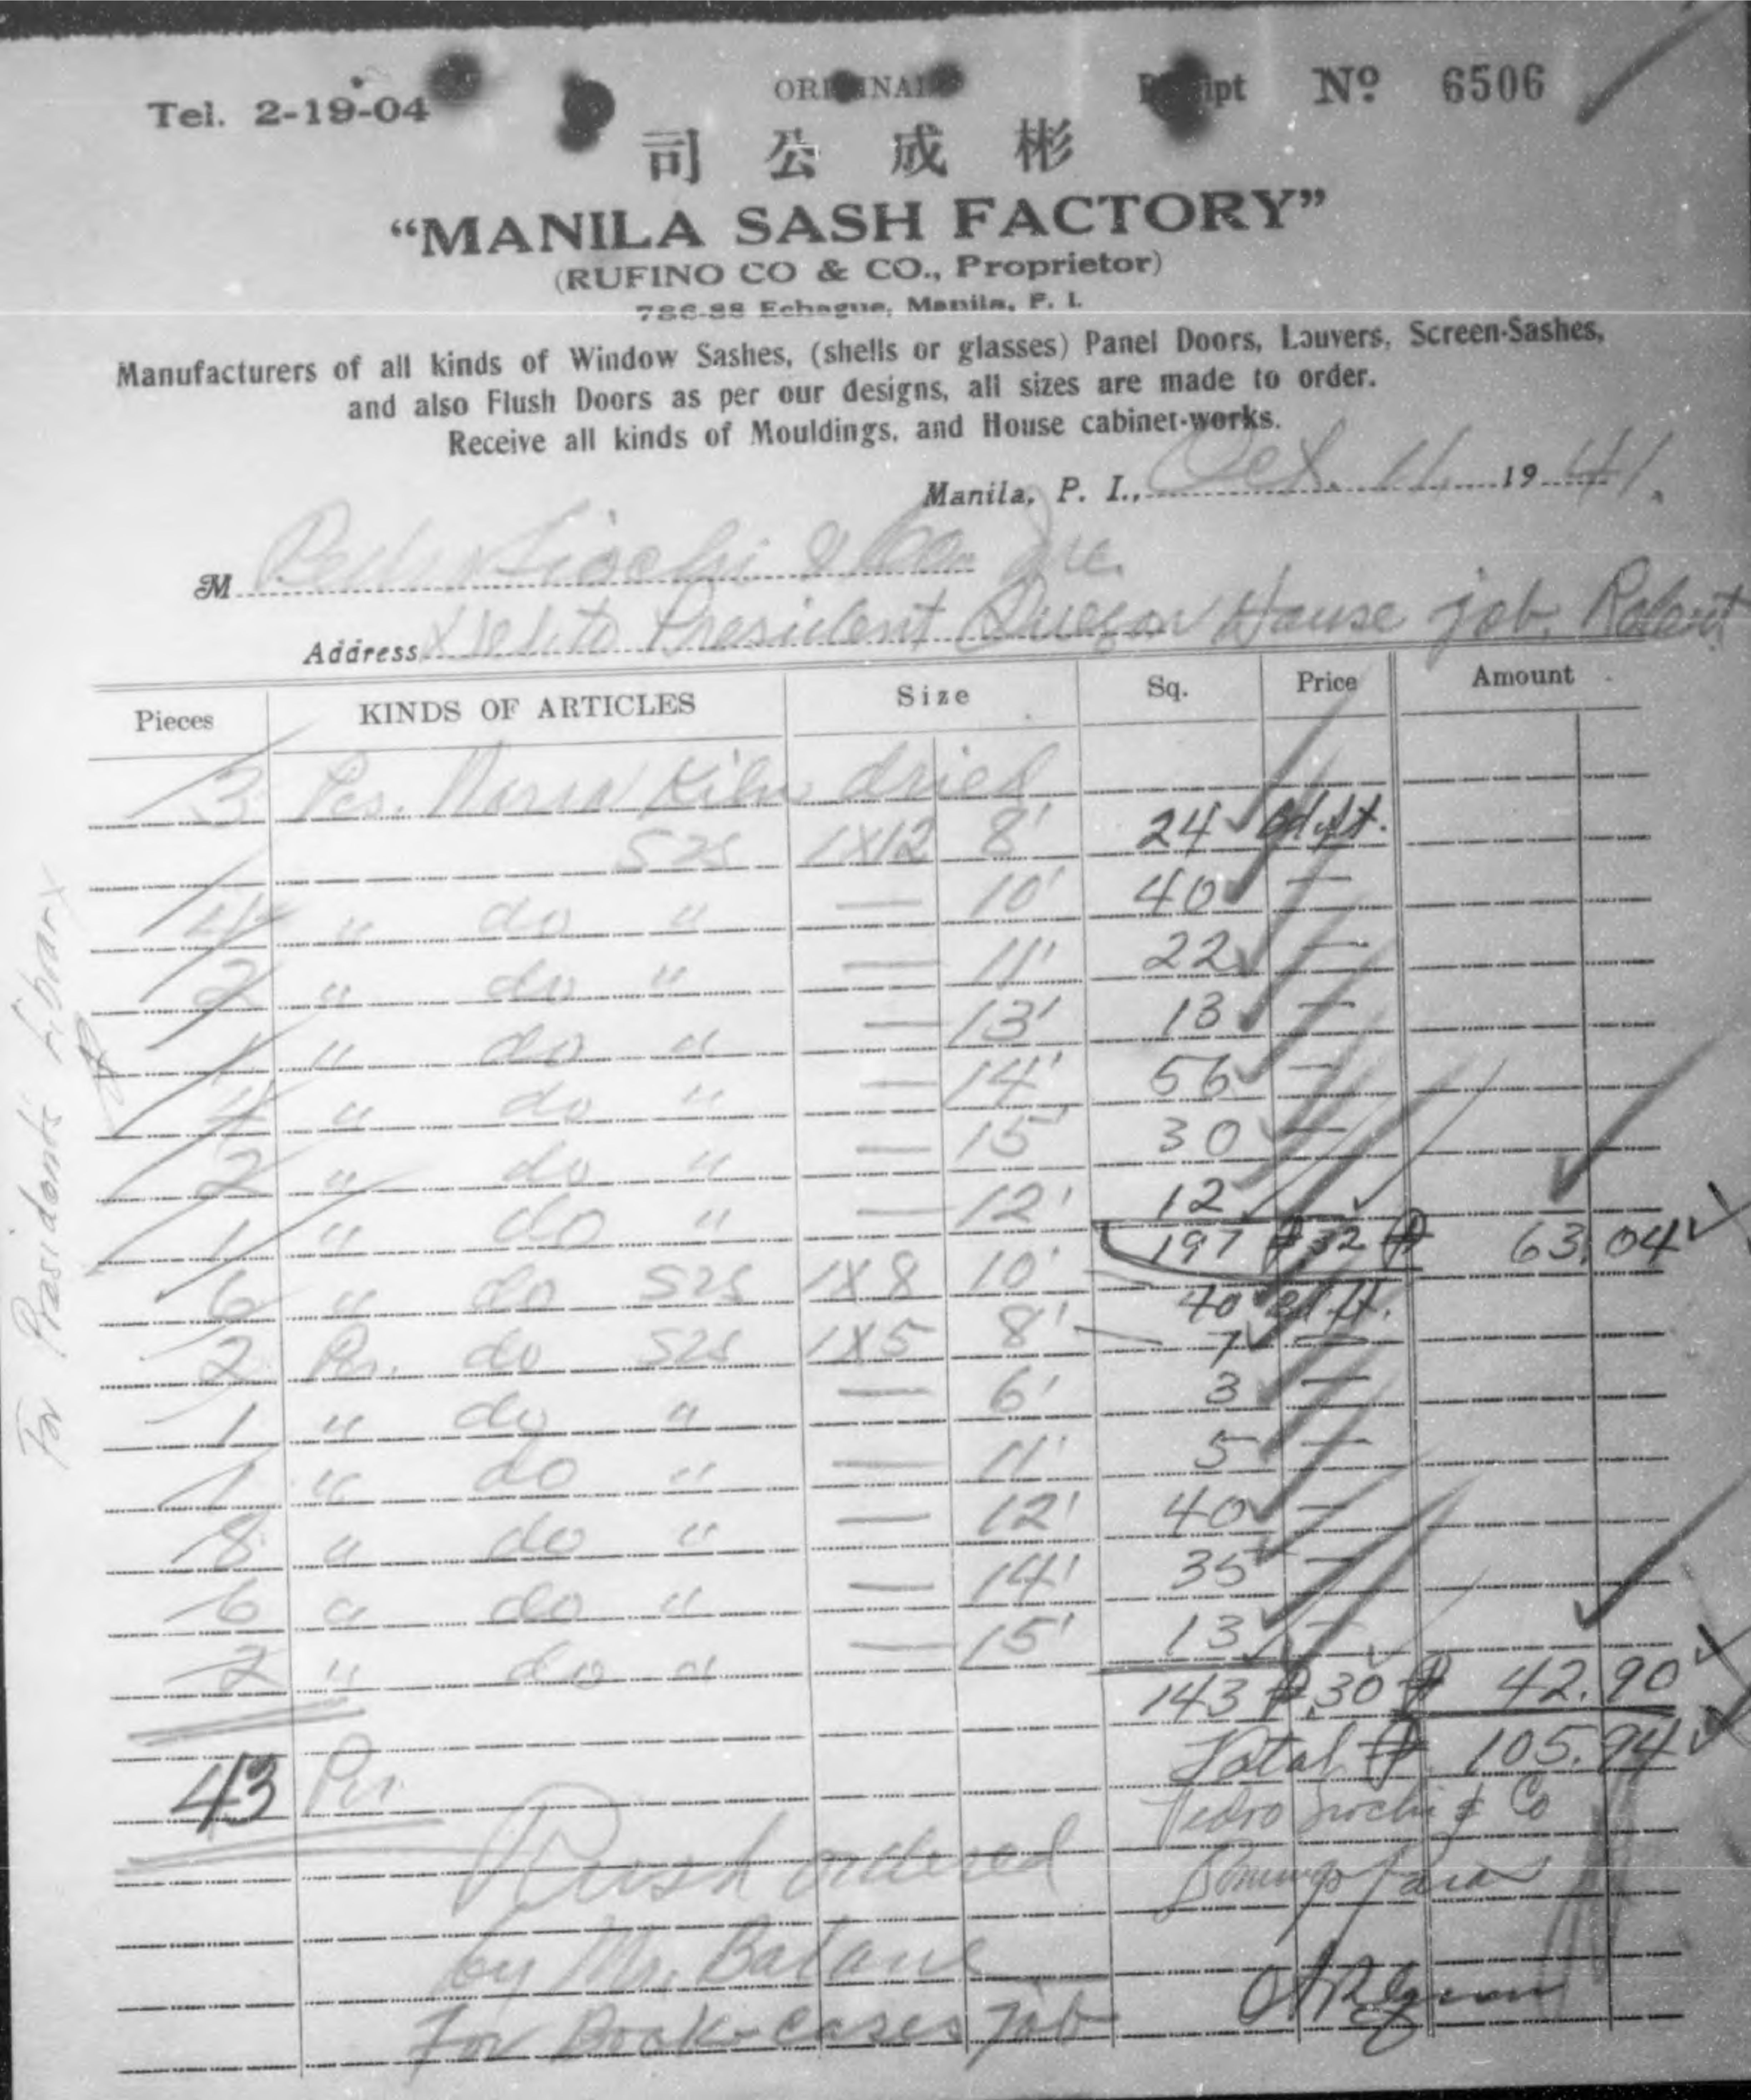 Tel. 2-19-04
ORIGINAL
Receipt Nº 6506
司公成彬
“MANILA SASH FACTORY”
(RUFINO CO & CO., Proprietor)
786-88 Echague, Manila, P. I.
Manufacturers of all kinds of Window Sashes, (shells or glasses) Panel Doors, Louvers, Screen-Sashes,
and also Flush Doors as per our designs, all sizes are made to order.
Receive all kinds of Mouldings, and House cabinet-works.
Manila, P. I., Oct. 11, 1941.
M Pedro Siochi & Co. Inc.
Address Del. to President Quezon House job.
Pieces KINDS OF ARTICLES Size Sq. Price Amount
3 Pcs. Narra Kiln dried
S2S 1X12 8' 24 bd. ft.
4 " do " — 10' 40 —
2 " do " — 11' 22 —
1 " do " — 13' 13 —
4 " do " — 14' 56 —
2 " do " — 15' 30 —
1 " do " — 12' 12
197 ₱.32 ₱ 63.04
6 " do S2S 1X8 10' 40 bd. ft.
2 Pcs. do S2S 1X5 8' 7 —
1 " do " — 6' 3 —
1 " do " — 11' 5 —
8 " do " — 12' 40 —
6 " do " — 14' 35 —
2 " do " — 15' 13 —
143 ₱.30 ₱ 42.90
Total ₱ 105.94
43 Pcs.
Pedro Siochi & Co
Rush ordered
Domingo
by Mr. Batans
For Book-cases job
For Presidents Library